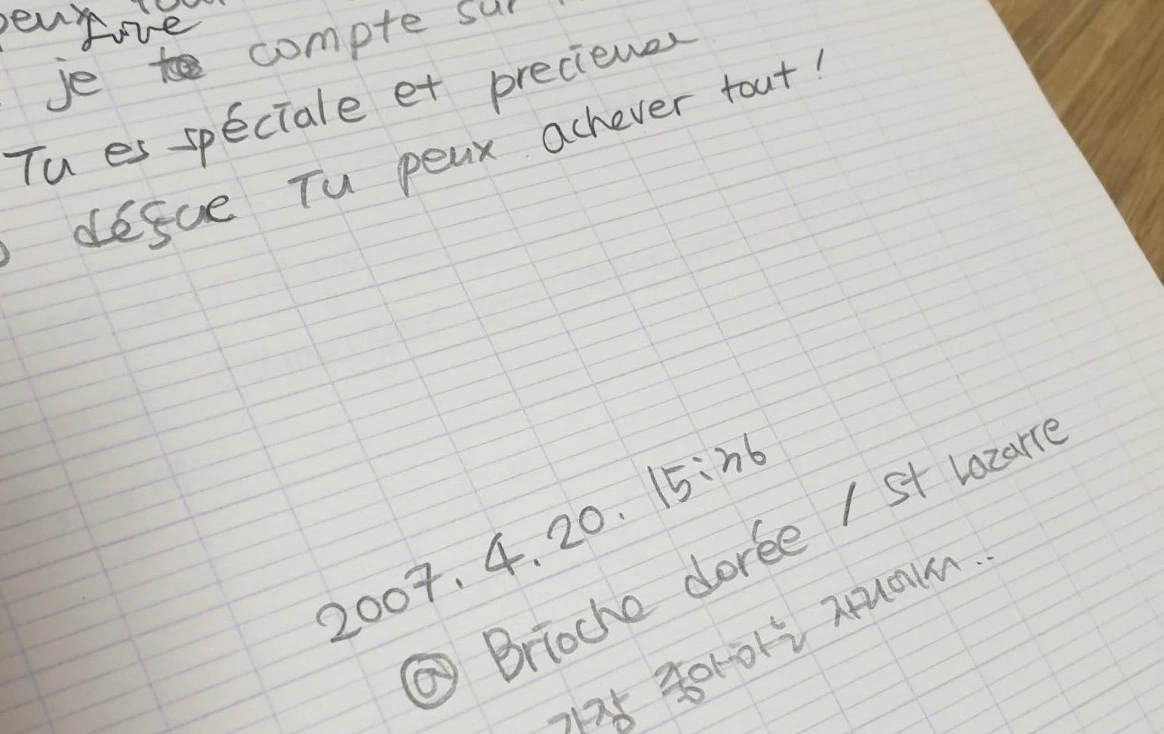 peux
je compte sur
Tu es spéciale et precieuse
déçue Tu peux achever tout !
2007. 4. 20.
@ Brioche dorée / St Lazarre
가장 좋아하는 자리에서..